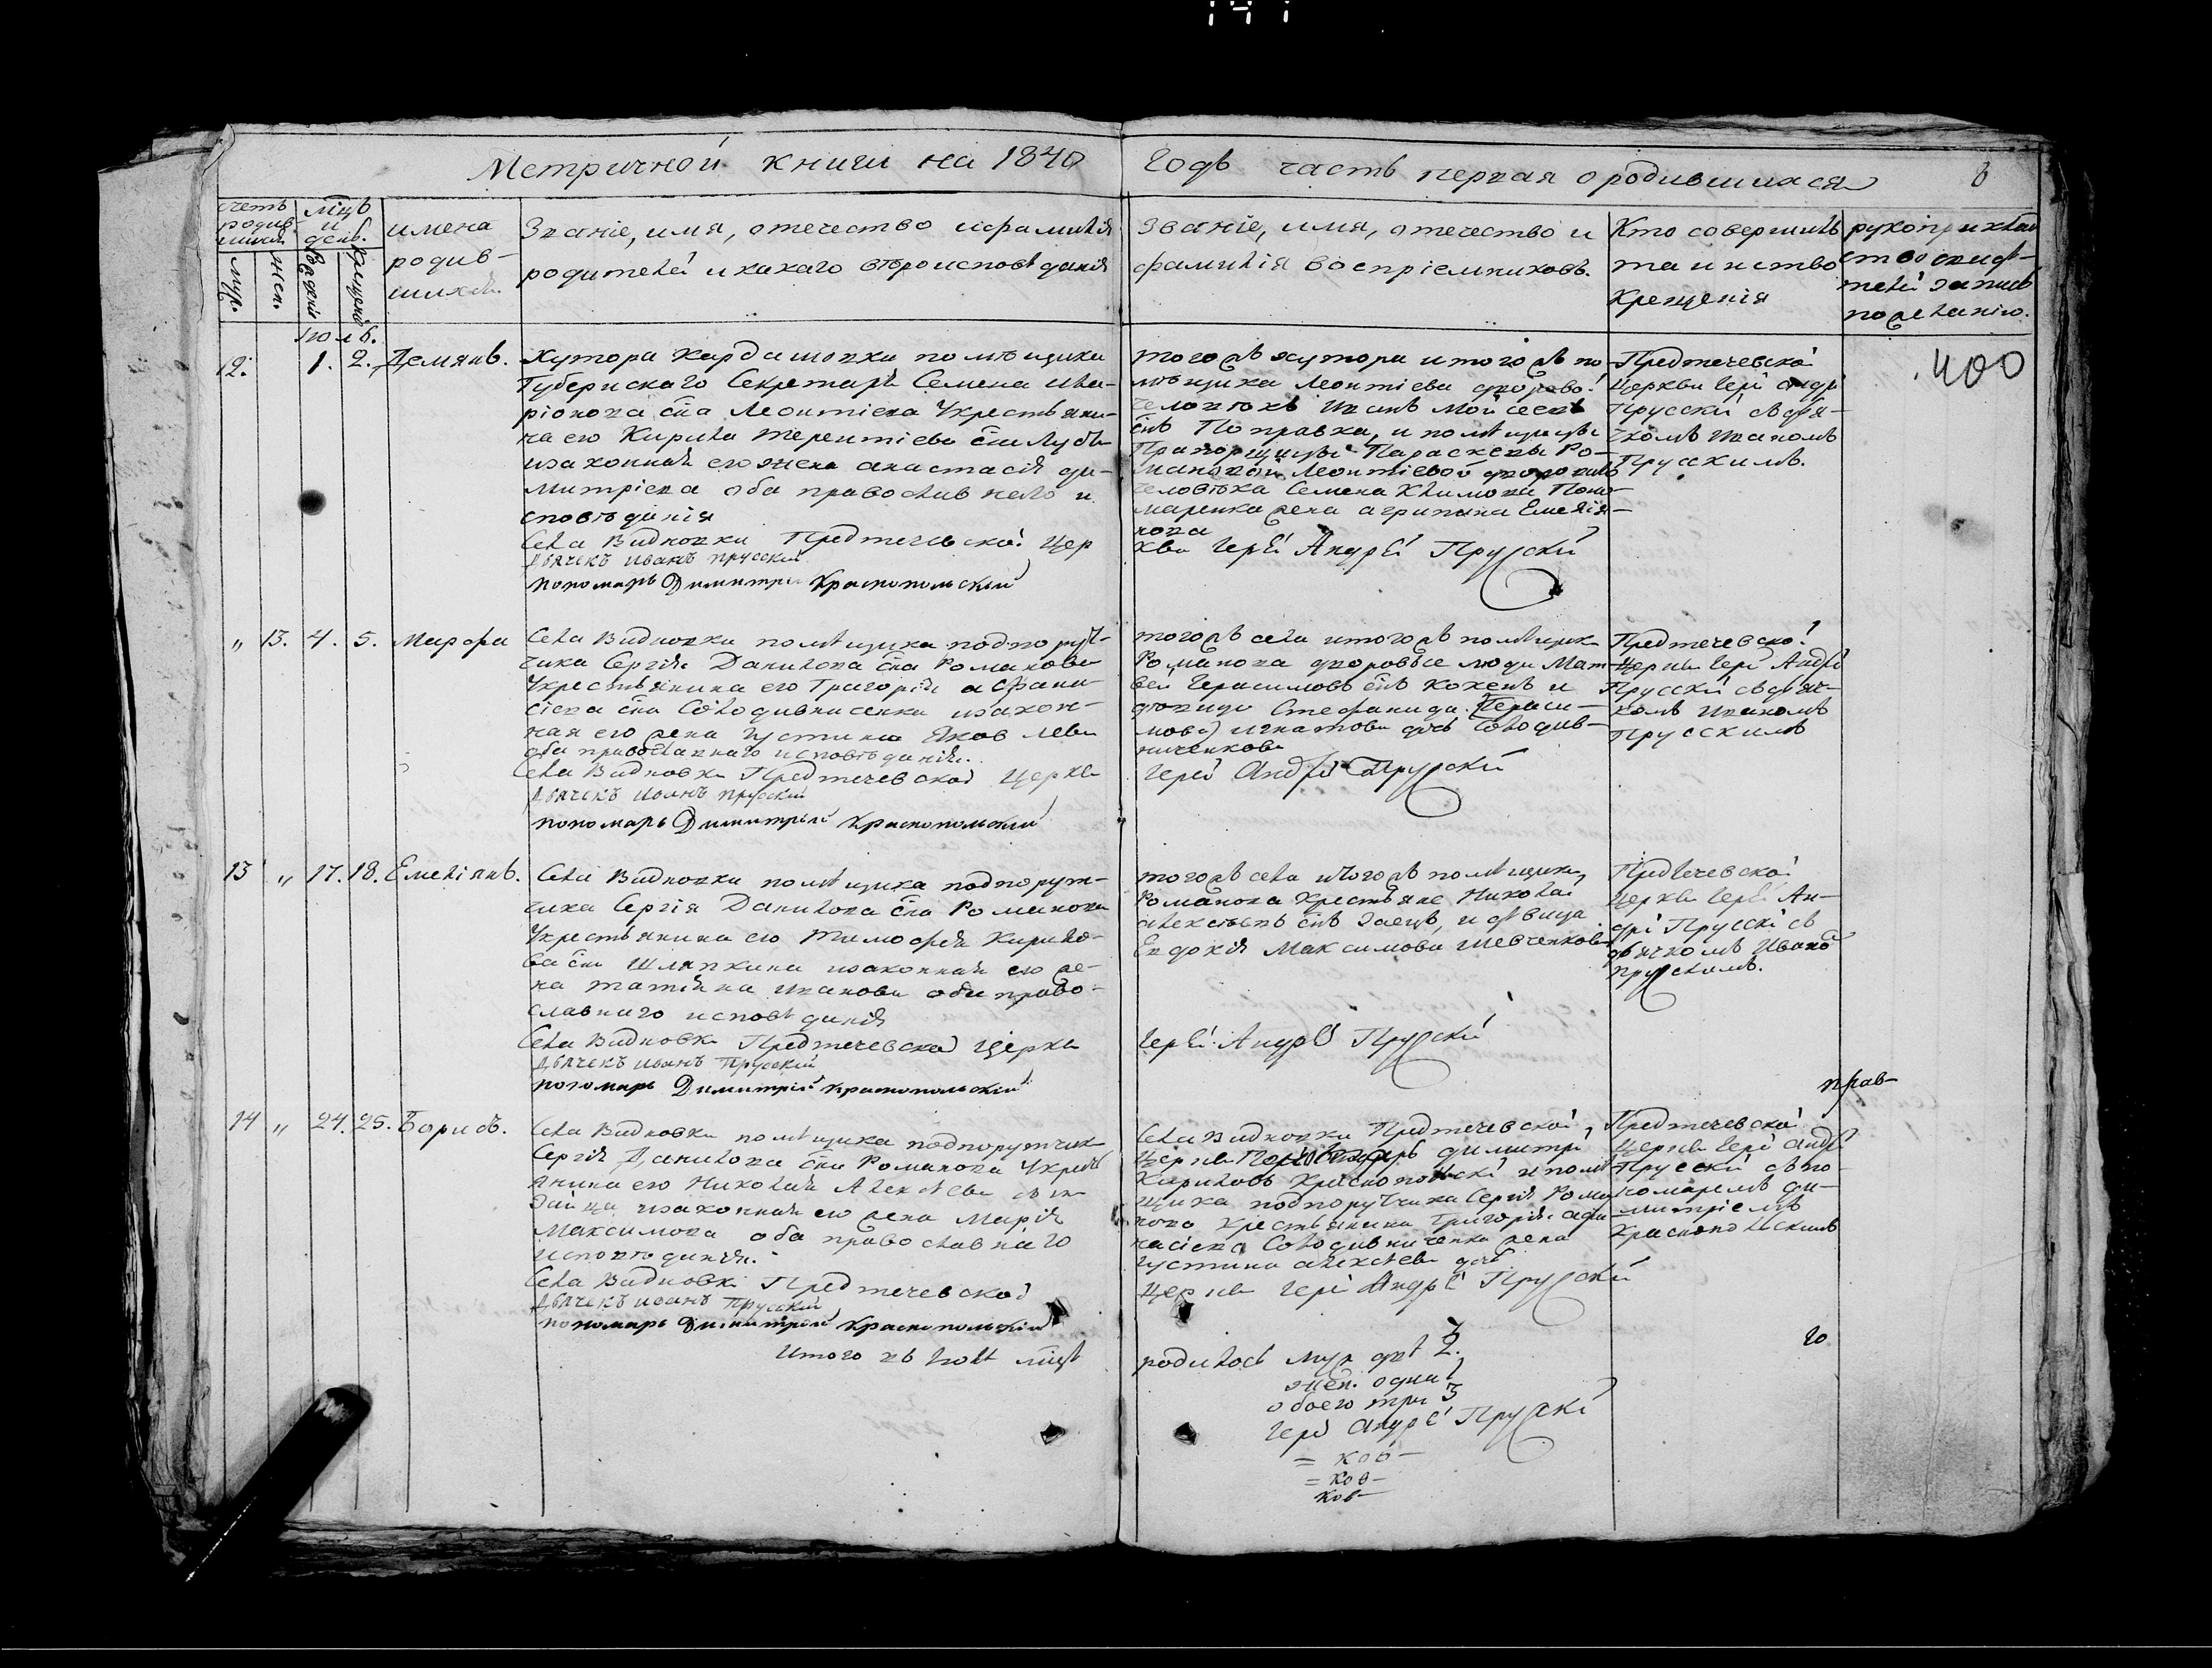 Метричной книги на 1840
годъ часть первая о родившихся
8
счетъ родив-шихся
мцъ и день.
имена родив-шихся.
Званіе, имя, отечество и фамилія
родителей и какаго вѣроисповѣданія
Званіе, имя, отечество и
фамилія воспріемниковъ.
Кто совершилъ
таинство
крещенія
рукоприклад
ство свидѣ-
телей записи
по желанію.
муж.
жен.
рожденія
крещенія
Іюль.
12.
1. 2. Демянъ.
хутора Кардашовки помѣщика
Губернскаго Секретаря Семена Ила-
ріонова сна Леонтіева Укрестьяни-
на его Кирила Терентіева сна
изаконная его жена анастасія ди-
митріева оба православнаго и
сповѣданія
Села Видновки Предтечевской Цер
Дьячекъ Иванъ Прусскій
пономарь Димитрій Краснопольскій
тогожъ хутора и тогожъ по
мѣщика Леонтіева дворовой
человѣкъ Иванъ Мойсеевъ
снъ Поправка, и помѣщицы
Прапорщицы Параскевы Ро-
мановой Леонтіевой двороваго
человѣка Семена Климова Поно-
маренка жена агрипина Емелія-
нова
кви Іерей Андрей Прусскій
Предтечевской
Церкви Іерей Андрей
Прусскій съ дья-
чкомъ Иваномъ
Прусскимъ.
400
" 13. 4. 5. Марфа
Села Видновки помѣщика подпорут-
чика Сергія Данилова сна Романова
Укрестьянина его Григорія афана-
сіева сна Солодивниченка изакон-
ная его жена Іустина Яковлева
оба православнаго исповѣданія.
Села Видновки Предтечевской Церкви
Дьячекъ Иванъ Прусскій
пономарь Димитрій Краснопольскій
тогожъ села и тогожъ помѣщика
Романова дворовые люди Мат-
вей Герасимовъ снъ Коженъ и
дѣвица Стефанида (Гераси-
мова) игнатова дочь Солодив-
ниченкова
Іерей Андрей Прусскій
Предтечевской
Церкви Іерей Андрей
Прусскій съ дьяч-
комъ Иваномъ
Прусскимъ
13 " 17. 18. Емеліянъ.
Села Видновки помѣщика подпорут-
чика Сергія Данилова сна Романова
Укрестьянина его Тимофея Кирило-
ва сна Шляпкина изаконная его же-
на татіяна Иванова оба право-
славнаго исповѣданія
Села Видновки Предтечевской Церкви
Дьячекъ Иванъ Прусскій
пономарь Димитрій Краснопольскій
тогожъ села и тогожъ помѣщика
Романова крестьяне Николай
алексѣевъ снъ Заецъ, и дѣвица
Евдокія Максимова Шевченкова
Іерей Андрей Прусскій
Предтечевской
Церкви Іерей Ан-
дрей Прусскій съ
дьячкомъ Иваномъ
Прусскимъ.
прав-
14 " 24. 25. Борисъ.
Села Видновки помѣщика подпорутчика
Сергія Данилова сна Романова Укресть
янина его Николая Алексѣева сна
Зайца изаконная его жена Марія
Максимова оба православнаго
исповѣданія.
Села Видновки Предтечевской
Дьячекъ Иванъ Прусскій
пономарь Димитрій Краснопольскій
Итого въ Іюлѣ мцѣ
Села Видновки Предтечевской
Церкви Пономарь Димитрій
Кириловъ Краснопольскій и помѣ
щика подпорутчика Сергія Рома
нова крестьянина Григорія афа-
насіева Солодивниченка жена
Іустина алексѣева дочь
Церкви Іерей Андрей Прусскій
Предтечевской
Церкви Іерей Андрей
Прусскій съ по-
номаремъ ди-
митріемъ
Краснопольскимъ
го
родилось муж двѣ 2.
жен. одна 1
обоего три 3
Іерей Андрей Прусскій
= ков-
= ков-
ков-